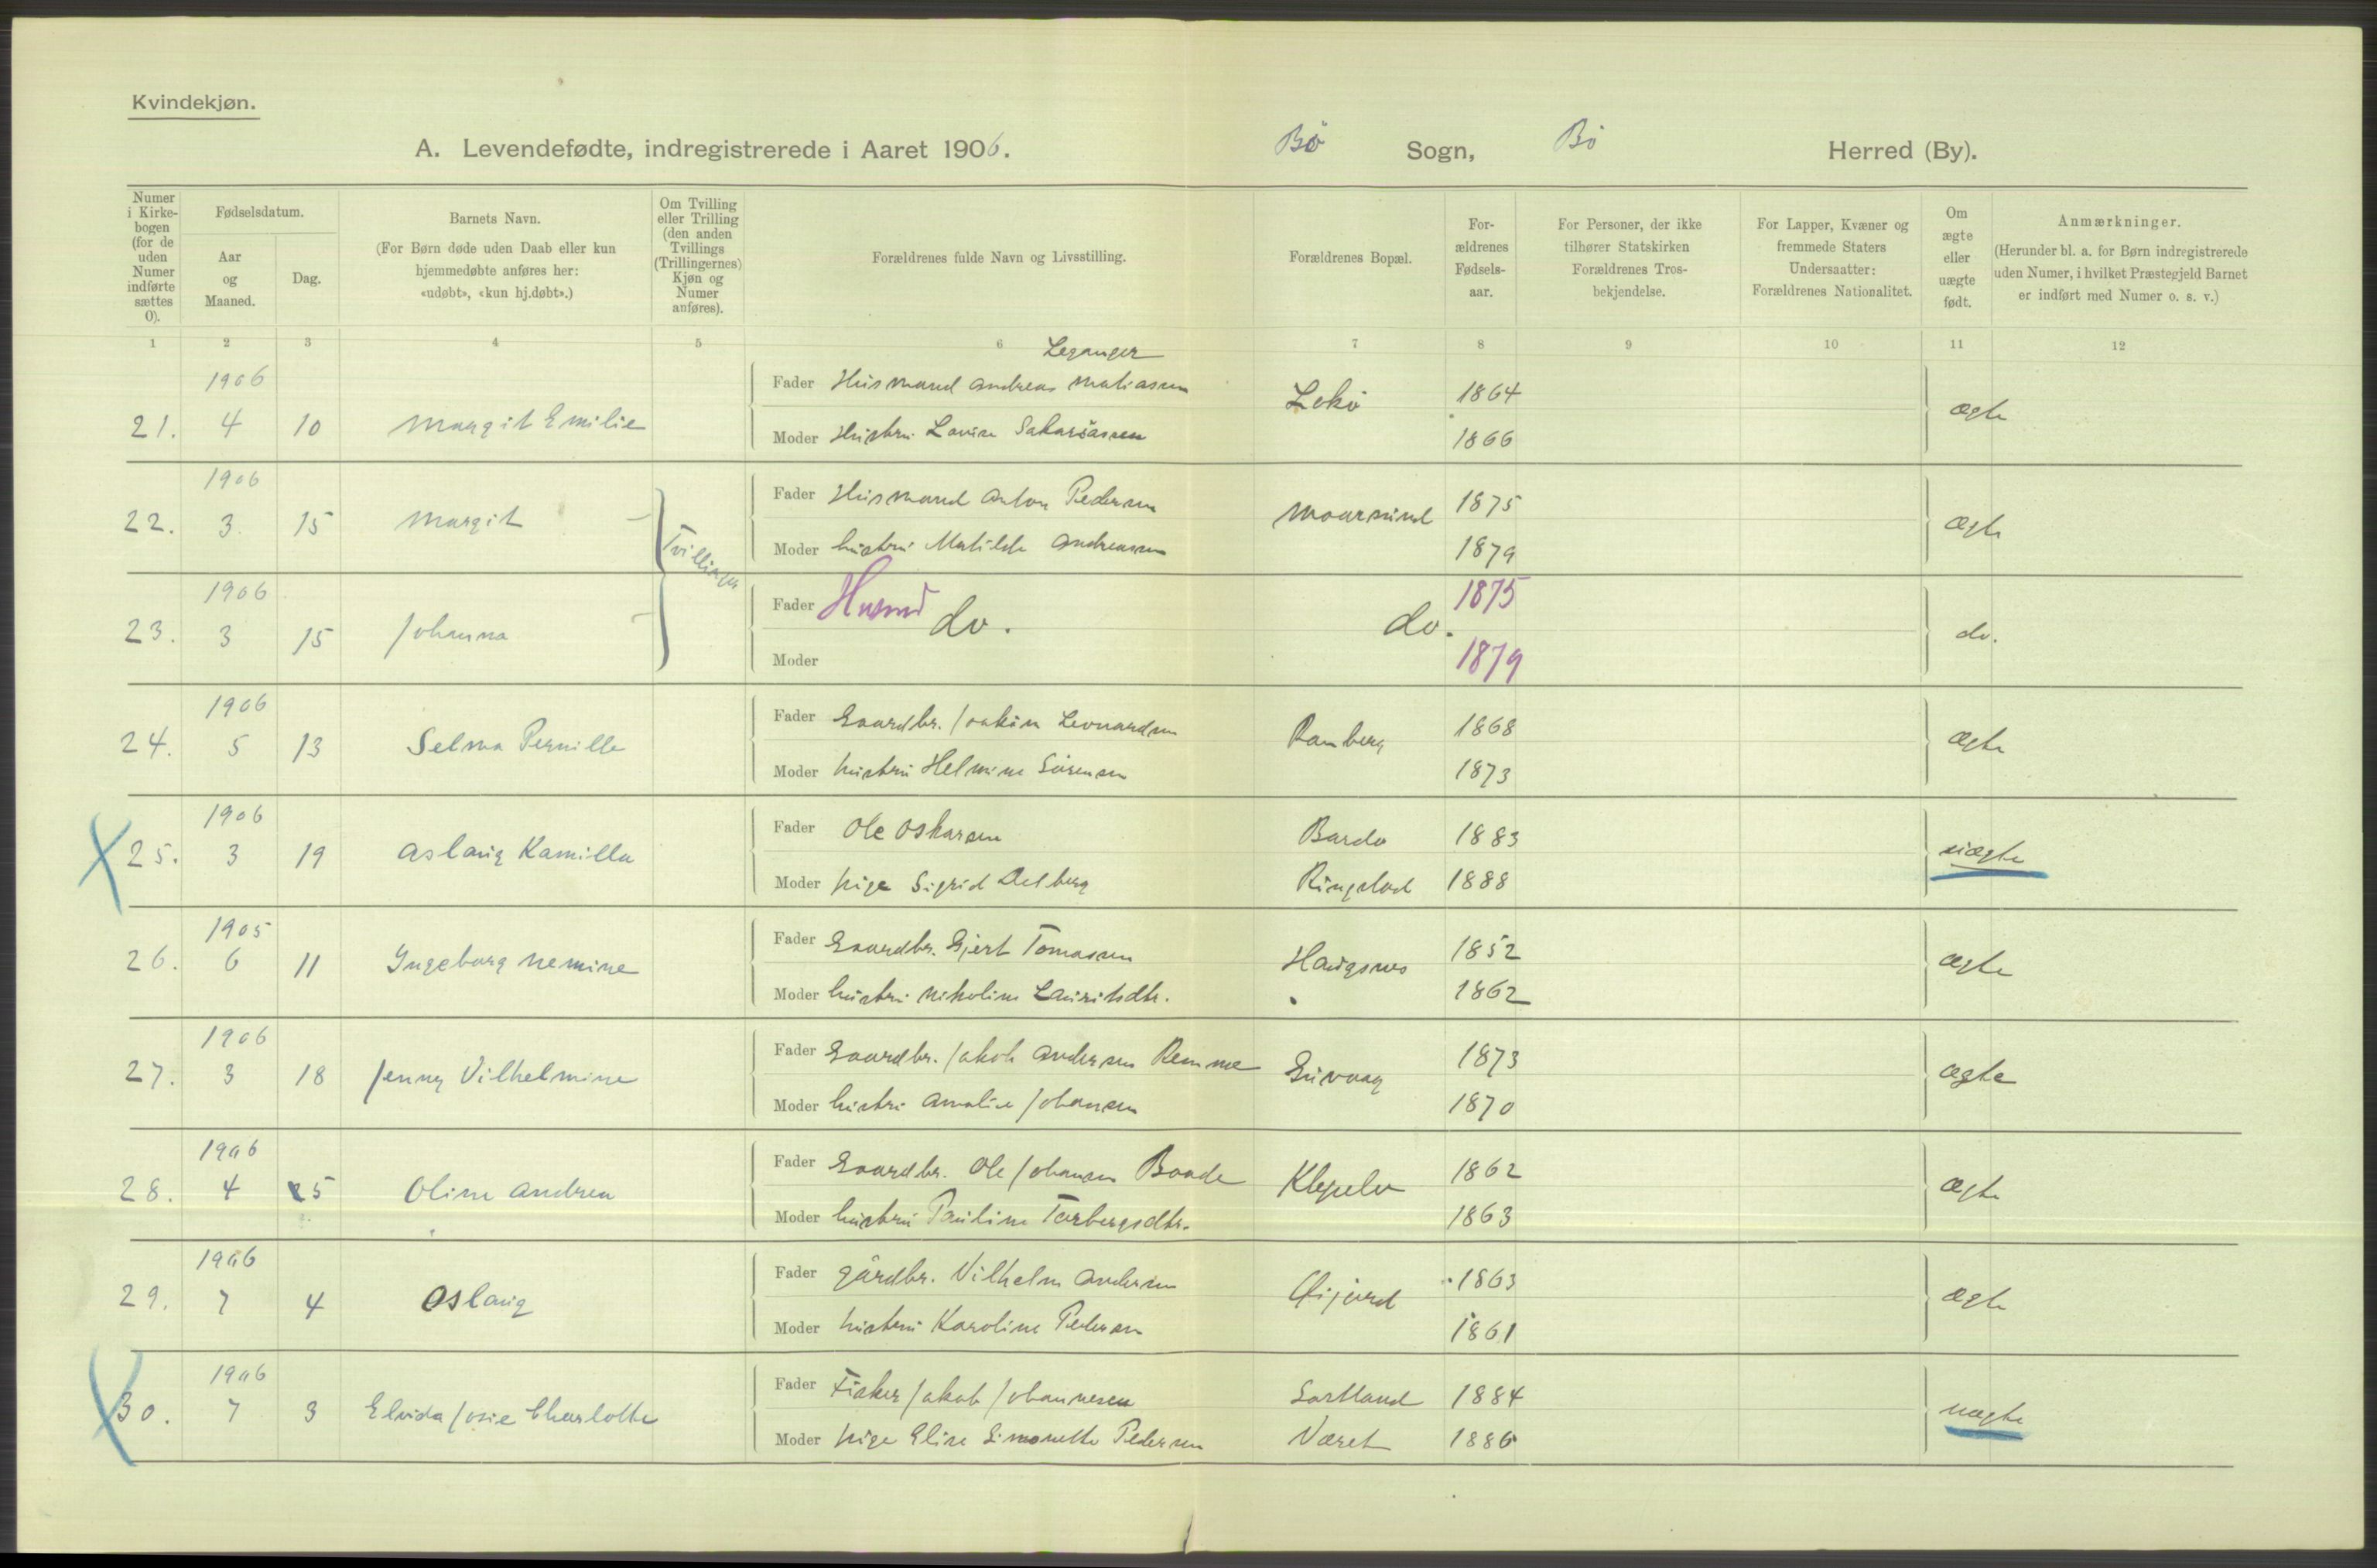 Kvindekjøn.
A. Levendefødte, indregistrerede i Aaret 1906. Bö Sogn, Bö Herred (By).
Numer i Kirkebogen (for de uden Numer indførte sættes 0).
Fødselsdatum.
Aar og Maaned.
Dag.
Barnets Navn.
(For Børn døde uden Daab eller kun hjemmedøbte anføres her: «udøbt», «kun hj.døbt».)
Om Tvilling eller Trilling (den anden Tvillings (Trillingernes) Kjøn og Numer anføres).
Forældrenes fulde Navn og Livsstilling.
Forældrenes Bopæl.
Forældrenes Fødselsaar.
For Personer, der ikke tilhører Statskirken Forældrenes Trosbekjendelse.
For Lapper, Kvæner og fremmede Staters Undersaatter: Forældrenes Nationalitet.
Om ægte eller uægte født.
Anmærkninger.
(Herunder bl. a. for Børn indregistrerede uden Numer, i hvilket Præstegjeld Barnet er indført med Numer o. s. v.)
1 2 3 4 5 6 7 8 9 10 11 12
Leganger
1906 Fader Husmand Andreas Matiassen 1864
21. 4 10 Margit Emilie Lokö ægte
Moder Hustru Lovise Sakariassen 1866
1906 Fader Husmand Anton Pedersen 1875
22. 3. 15 Margit Tvillinger Moarsund ægte
Moder hustru Matilde Andreassen 1879
1906 Fader Husmd do. do. 1875
23. 3 15 Johanna do.
Moder 1879
1906 Fader Gaardbr. Joakim Leonardsen 1868
24. 5 13 Selma Pernille Ramberg ægte
Moder hustru Helmine Sörensen 1873
1906 Fader Ole Oskarsen Bardo 1883
25. 3 19 Aslaug Kamilla uægte
Moder pige Sigrid Delberg Ringstad 1888
1905 Fader Gaardbr. Gjert Tomassen 1852
26. 6 11 Ingeborg Nemine Haugsnes ægte
Moder hustru Nikoline Lauritsdtr. 1862
1906 Fader Gaardbr. Jakob Andersen Remme 1873
27. 3 18 Jenny Vilhelmine Guvaag ægte
Moder hustru Amalie Johansen 1870
1906 Fader Gaardbr. Ole Johansen Baade 1862
28. 4 25 Oline Andrea Klepelv ægte
Moder hustru Pauline Torbergsdtr. 1863
1906 Fader gårdbr. Vilhelm Andersen 1863
29. 7 4 Oslaug ægte
Moder hustru Karoline Pedersen 1861
1906 Fader Fisker Jakob Johannesen Sortland 1884
30. 7 3 Elvida Josie Charlotte uægte
Moder pige Elise Simonette Pedersen Været 1886